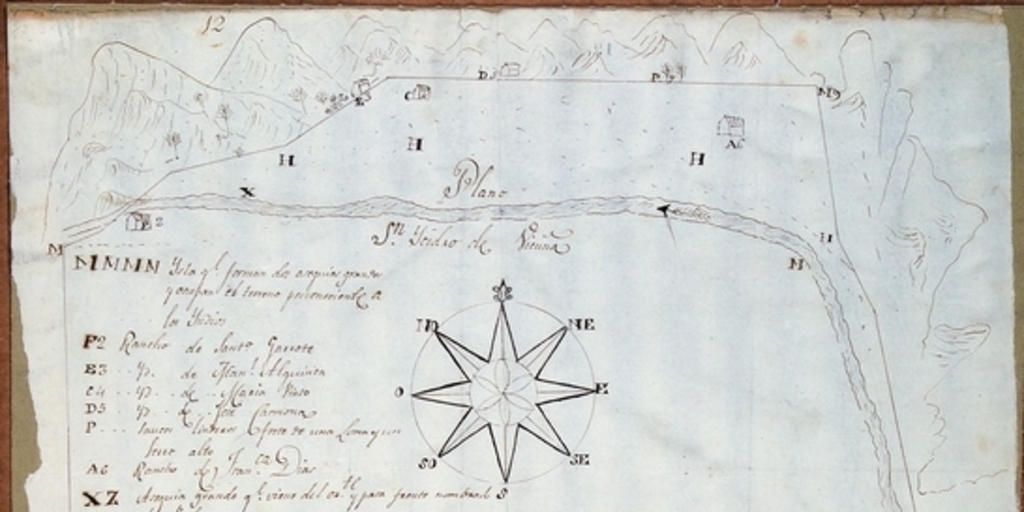 12
E
C
D5
P
M9
H
H
H
A6
X
Plano
F2
Sn. Ysidro de Vicuña
M
M
H
MMMM Ysla q.e forman dos asequias grandes
y ocupan el terreno perteneciente a
los Yndios
F2 Rancho de Sant.o Garrote
E3 .. Yd. de
C4 .. Yd. de Maria Pinto
D5 Yd. de José Carmona
P ... Sauces linderos, frete de una Loma y un
serro alto
A6 Rancho de Fran.co Dias
XZ Asequia grande q.e viene del or.te y pasa frente nombrado
NO
NE
O
E
SO
SE
S